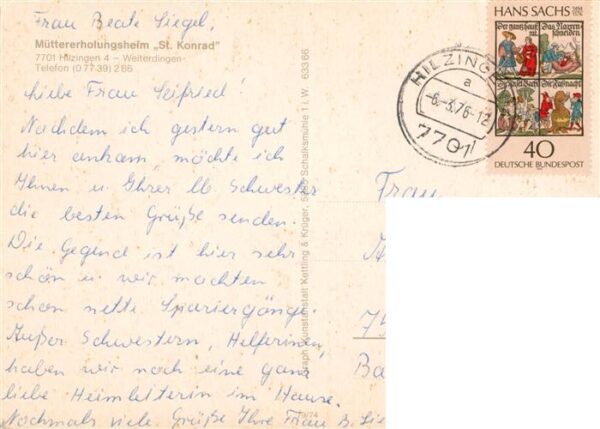 Frau Beate Siegel,
Müttererholungsheim „St. Konrad"
7701 Hilzingen 4 – Weiterdingen-
Telefon (0 77 39) 2 86
Liebe Frau Seifried!
Nachdem ich gestern gut
hier ankam, möchte ich
Ihnen u. Ihrer lb. Schwester
die besten Grüße senden.
Die Gegend ist hier sehr
schön u. wir machten
schon nette Spaziergänge.
Außer Schwestern, Helferinnen,
haben wir noch eine ganz
liebe Heimleiterin im Hause.
Nochmals viele Grüße Ihre Frau B. Sie
Graph. Kunstanstalt Kettling & Krüger, Schalksmühle 1 i. W. 633 66
74
HILZINGEN
a
-6.-3.76-12
7701
HANS SACHS
Der gantz haußrat
Das Narren schneiden
Die Faßnacht
40
DEUTSCHE BUNDESPOST
Frau
Ba